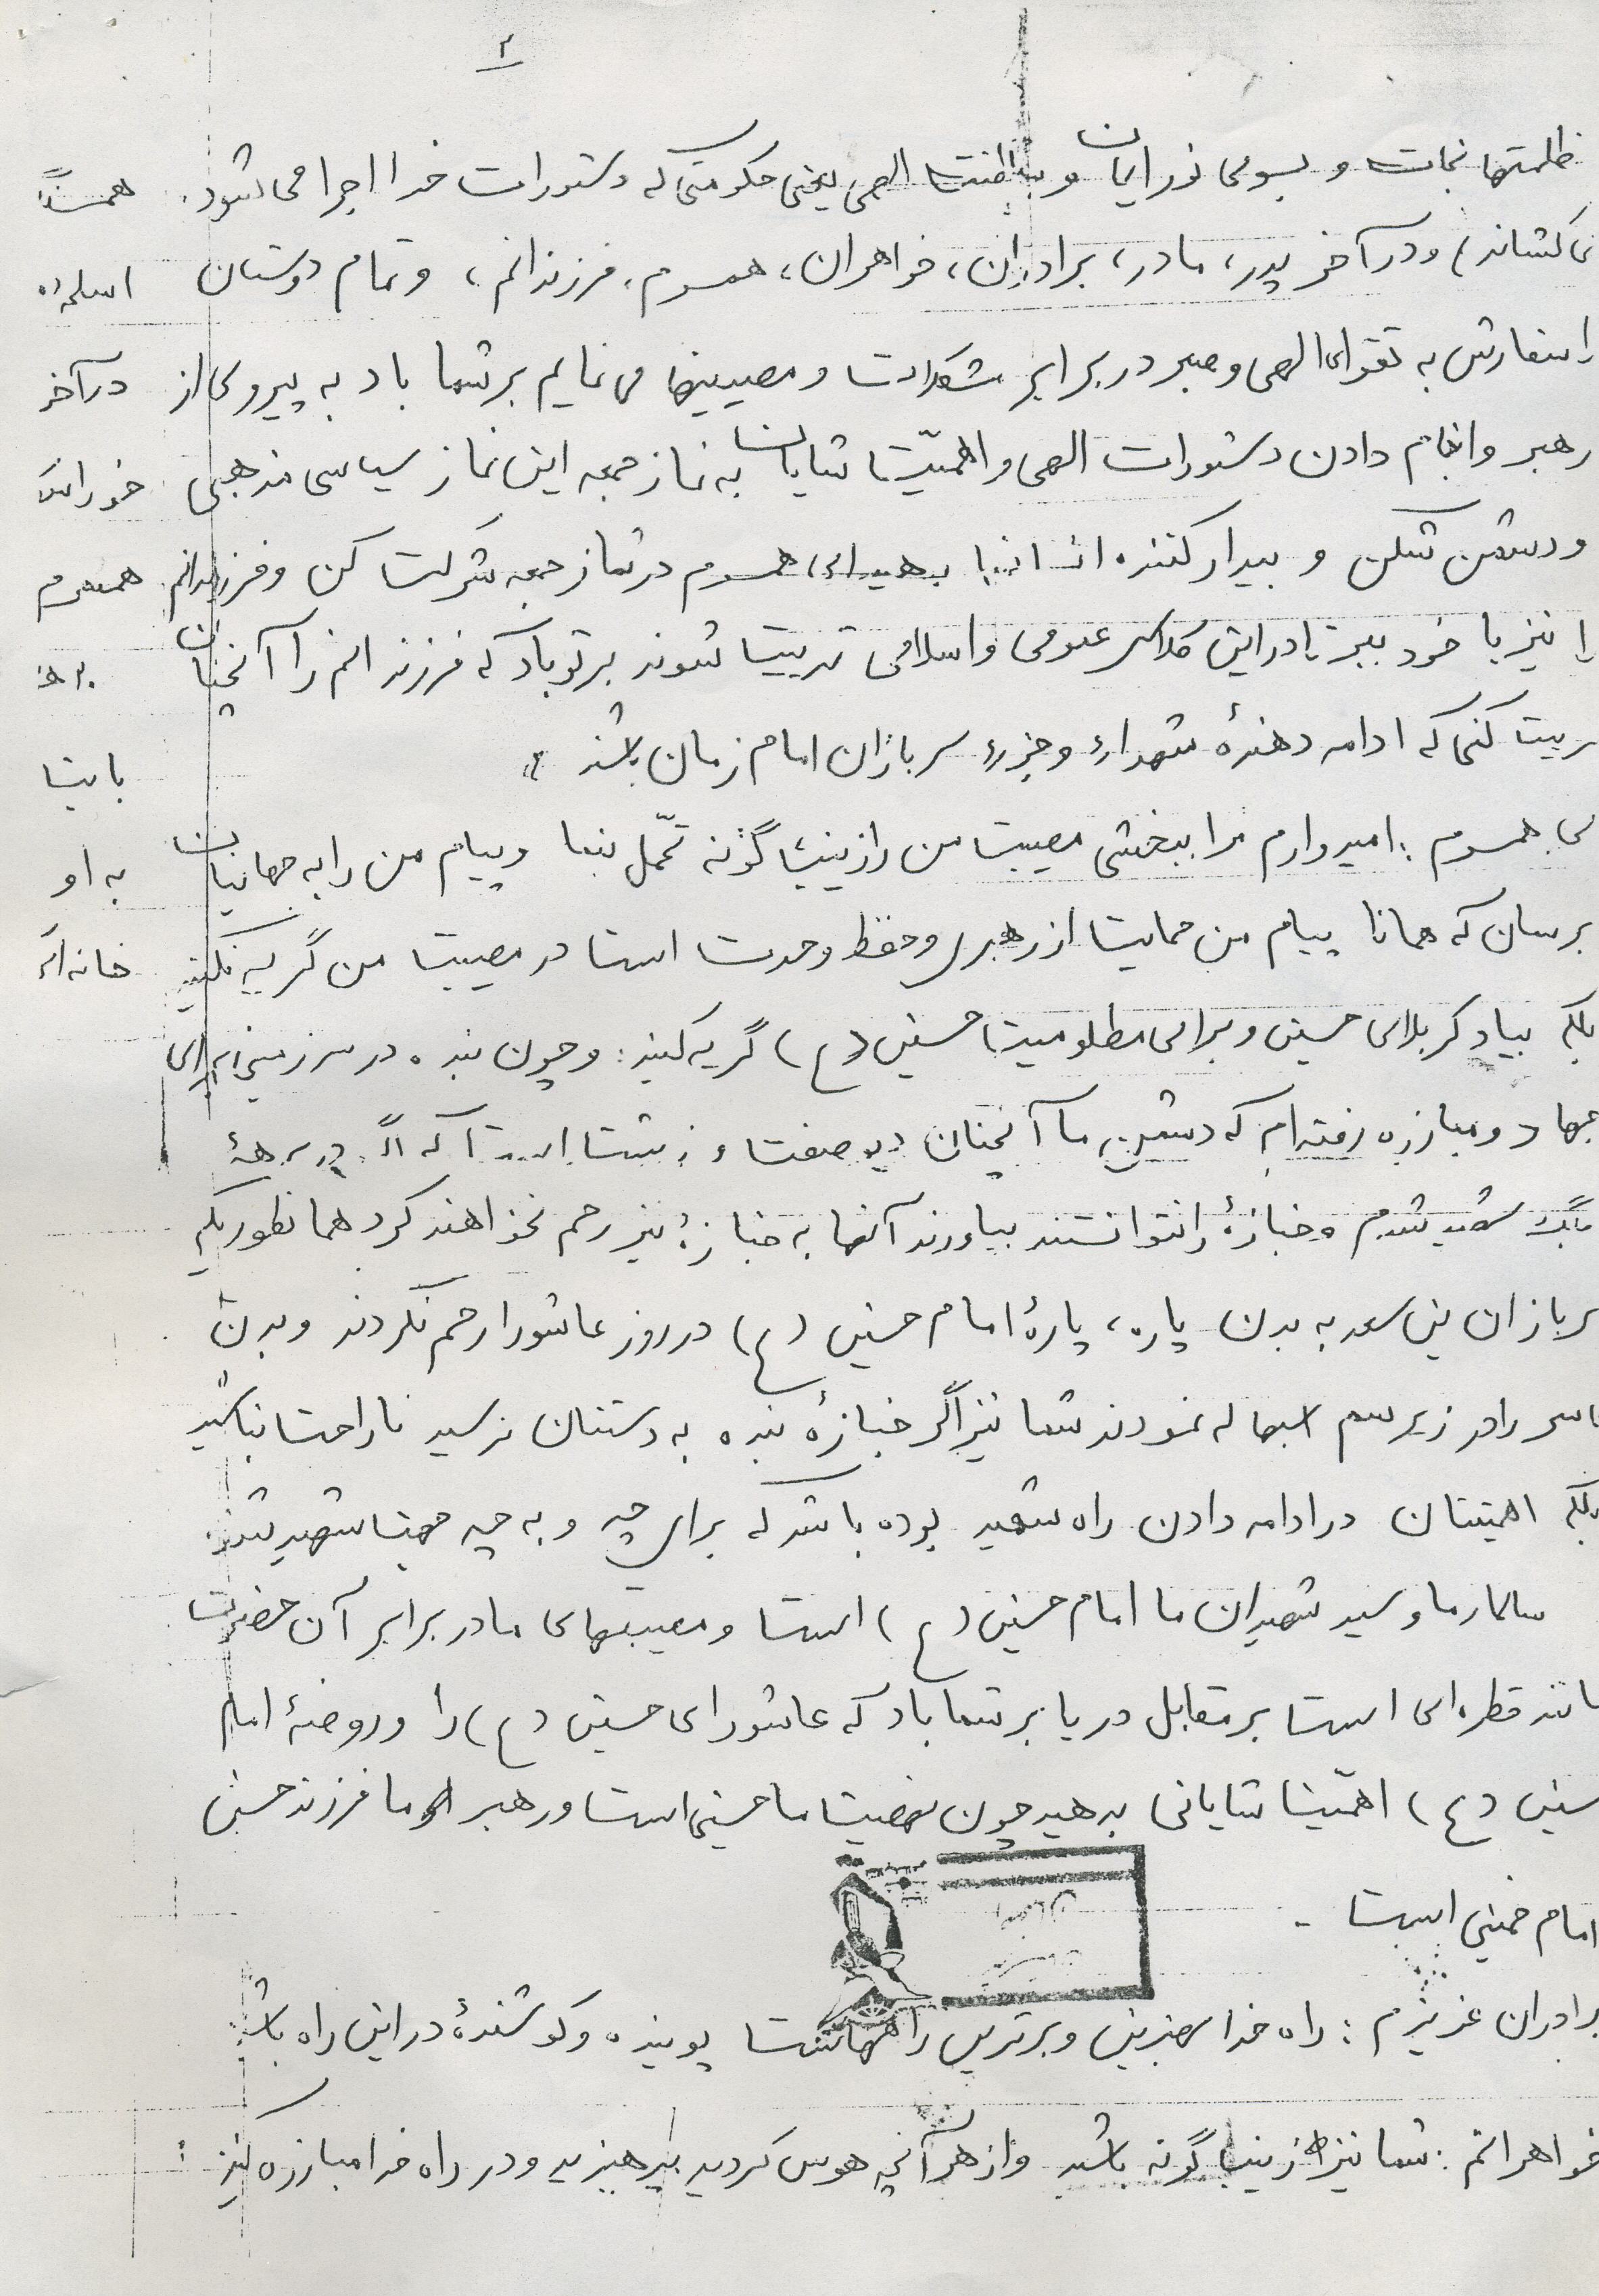 ۲
ظلمتها نجات و بسوی نور ایمان و سلطنت الهی یعنی حکومتی که دستورات خدا اجرا می شود.
می کشاند) و در آخر پدر، مادر، برادران، خواهران، همسرم، فرزندانم، و تمام دوستان
را سفارش به تقوای الهی و صبر در برابر مشکلات و مصیبیتها می نمایم بر شما باد به پیروی از
رهبر و انجام دادن دستورات الهی و اهمیّت شایان به نماز جمعه این نماز سیاسی مذهبی
و دشمن شکن و بیدار کننده انسانها بدهید ای همسرم در نماز جمعه شرکت کن و فرزندانم
را نیز با خود ببر تا در این کلاس عمومی و اسلامی تربیت شوند بر تو باد که فرزندانم را آنچنان
تربیت کنی که ادامه دهندهٔ شهداء و جزء سربازان امام زمان باشند
ای همسرم: امیدوارم مرا ببخشی مصیبت من را زینب گونه تحمّل بنما و پیام من را به جهانیان
برسان که همانا پیام من حمایت از رهبری و حفظ وحدت است در مصیبت من گریه نکنید
بلکه بیاد کربلای حسین و برای مظلومیت حسین (ع) گریه کنید: و چون بنده در سرزمینی برای
جهاد و مبازره رفته ام که دشمن ما آنچنان دیو صفت و زشت است که اگر در جبههٔ
جنگ شهید شدم و جنازهٔ را نتوانستند بیاورند آنها به جنازهٔ نیز رحم نخواهند کرد همانطوریکه
سربازان بنی سعد به بدن پاره، پارهٔ امام حسین (ع) در روز عاشورا رحم نکردند و بدن
را در زیر سم اسبها له نمودند شما نیز اگر جنازهٔ بنده به دستتان نرسید ناراحت نباشید
بلکه اهمیتتان در ادامه دادن راه شهید بوده باشد که برای چه و به چه جهت شهید شدند.
سالار ما و سید شهیدان ما امام حسین (ع) است و مصیبتهای ما در برابر آن حضرت
مانند قطره ای است بر مقابل دریا بر شما باد که عاشورای حسین (ع) را و روضهٔ امام
حسین (ع) اهمّیت شایانی بدهید چون نهضت ما حسینی است و رهبر ما فرزند حسین
امام خمینی است -
برادران عزیزم: راه خدا بهترین و برترین راههاست پوینده و کوشندهٔ در این راه باشید
خواهرانم: شما نیز زینب گونه باشید و از هر آنچه هوس کردید بپرهیزید و در راه خدا مبازره کنید:
در آخر
همسرم
با
به او